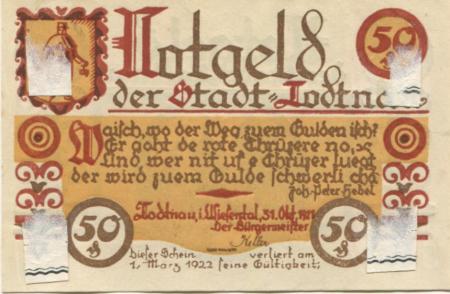 Notgeld 50
der Stadt=Todtnau
Waisch, wo der Weg zuem Gulden isch?
Er goht de rote Chrüzere no,
Und wer nit uf e Chrüzer luegt
der wird zuem Gulde schwerli cho
Joh. Peter Hebel
Todtnau, i. Wiesental, 31. Okt. 1921
Der Bürgermeister
Keller
50 50
Dieser Schein verliert am
1. März 1922 seine Gültigkeit;